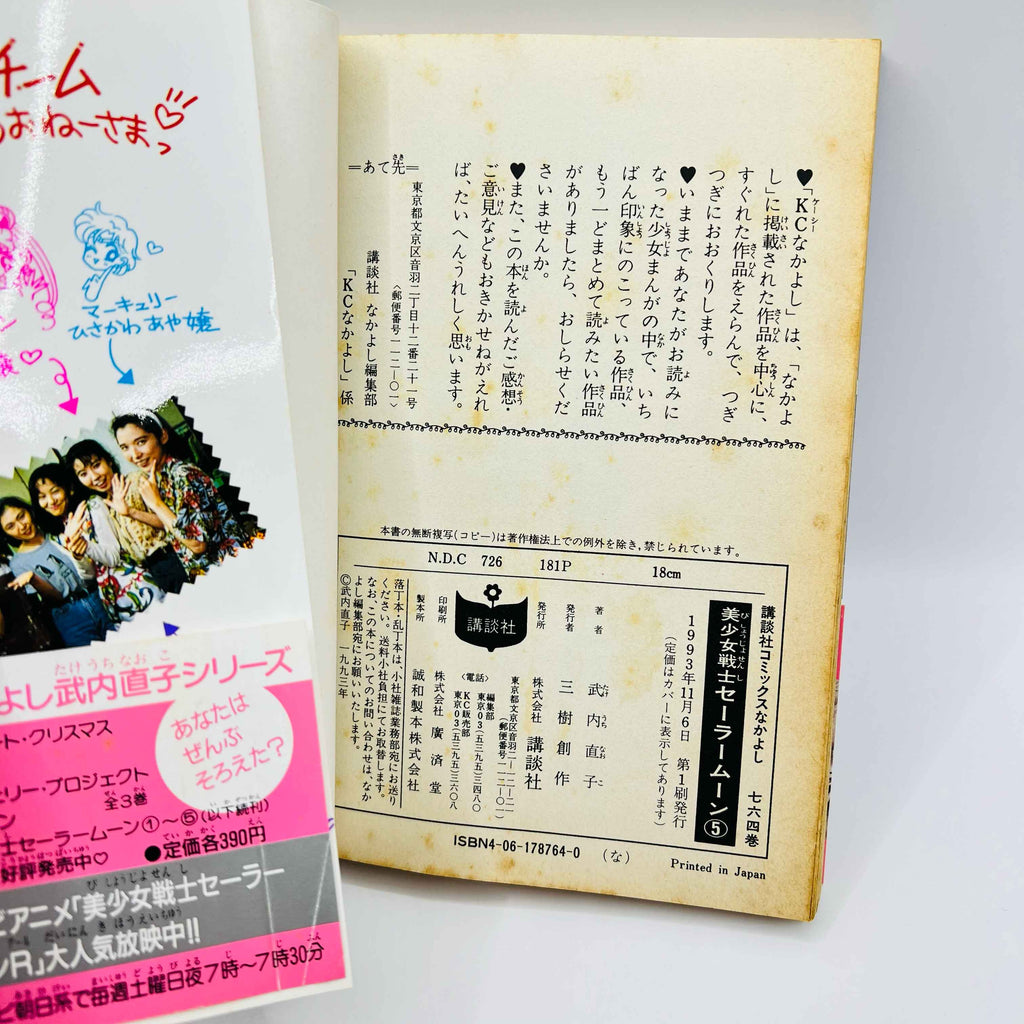 チーム
おねーさまっ
マーキュリー
ひさかわあや嬢
よし武内直子シリーズ
ート・クリスマス
ェリー・プロジェクト
全3巻
士セーラームーン①〜⑤(以下続刊)
好評発売中♡
●定価各390円
あなたは
ぜんぶ
そろえた?
ビアニメ「美少女戦士セーラー
ンR」大人気放映中!!
ビ朝日系で毎週土曜日夜7時〜7時30分
♥「KCなかよし」は、「なかよ
し」に掲載された作品を中心に、
すぐれた作品をえらんで、つぎ
つぎにおおくりします。
♥いままであなたがお読みに
なった少女まんがの中で、いち
ばん印象にのこっている作品、
もう一どまとめて読みたい作品
がありましたら、おしらせくだ
さいませんか。
♥また、この本を読んだご感想・
ご意見などもおきかせねがえれ
ば、たいへんうれしく思います。
=あて先=
東京都文京区音羽二丁目十二番二十一号
〈郵便番号一一二-〇一〉
講談社 なかよし編集部
「KCなかよし」係
本書の無断複写(コピー)は著作権法上での例外を除き,禁じられています。
N.D.C 726 181P 18cm
講談社コミックスなかよし 七六四巻
美少女戦士セーラームーン⑤
1993年11月6日 第1刷発行
(定価はカバーに表示してあります)
著者 武内直子
発行者 三樹創作
発行所 株式会社 講談社
東京都文京区音羽二-一二-二一
(郵便番号一一二-〇一)
〈電話〉 編集部 東京03(五三九五)三四八〇
KC販売部 東京03(五三九五)三六〇八
講談社
印刷所 株式会社 廣済堂
製本所 誠和製本株式会社
落丁本・乱丁本は、小社雑誌業務部宛にお送り
ください。送料小社負担にてお取替します。
なお、この本についてのお問い合わせは、なか
よし編集部宛にお願いいたします。
©武内直子 一九九三年
ISBN4-06-178764-0 (な)
Printed in Japan